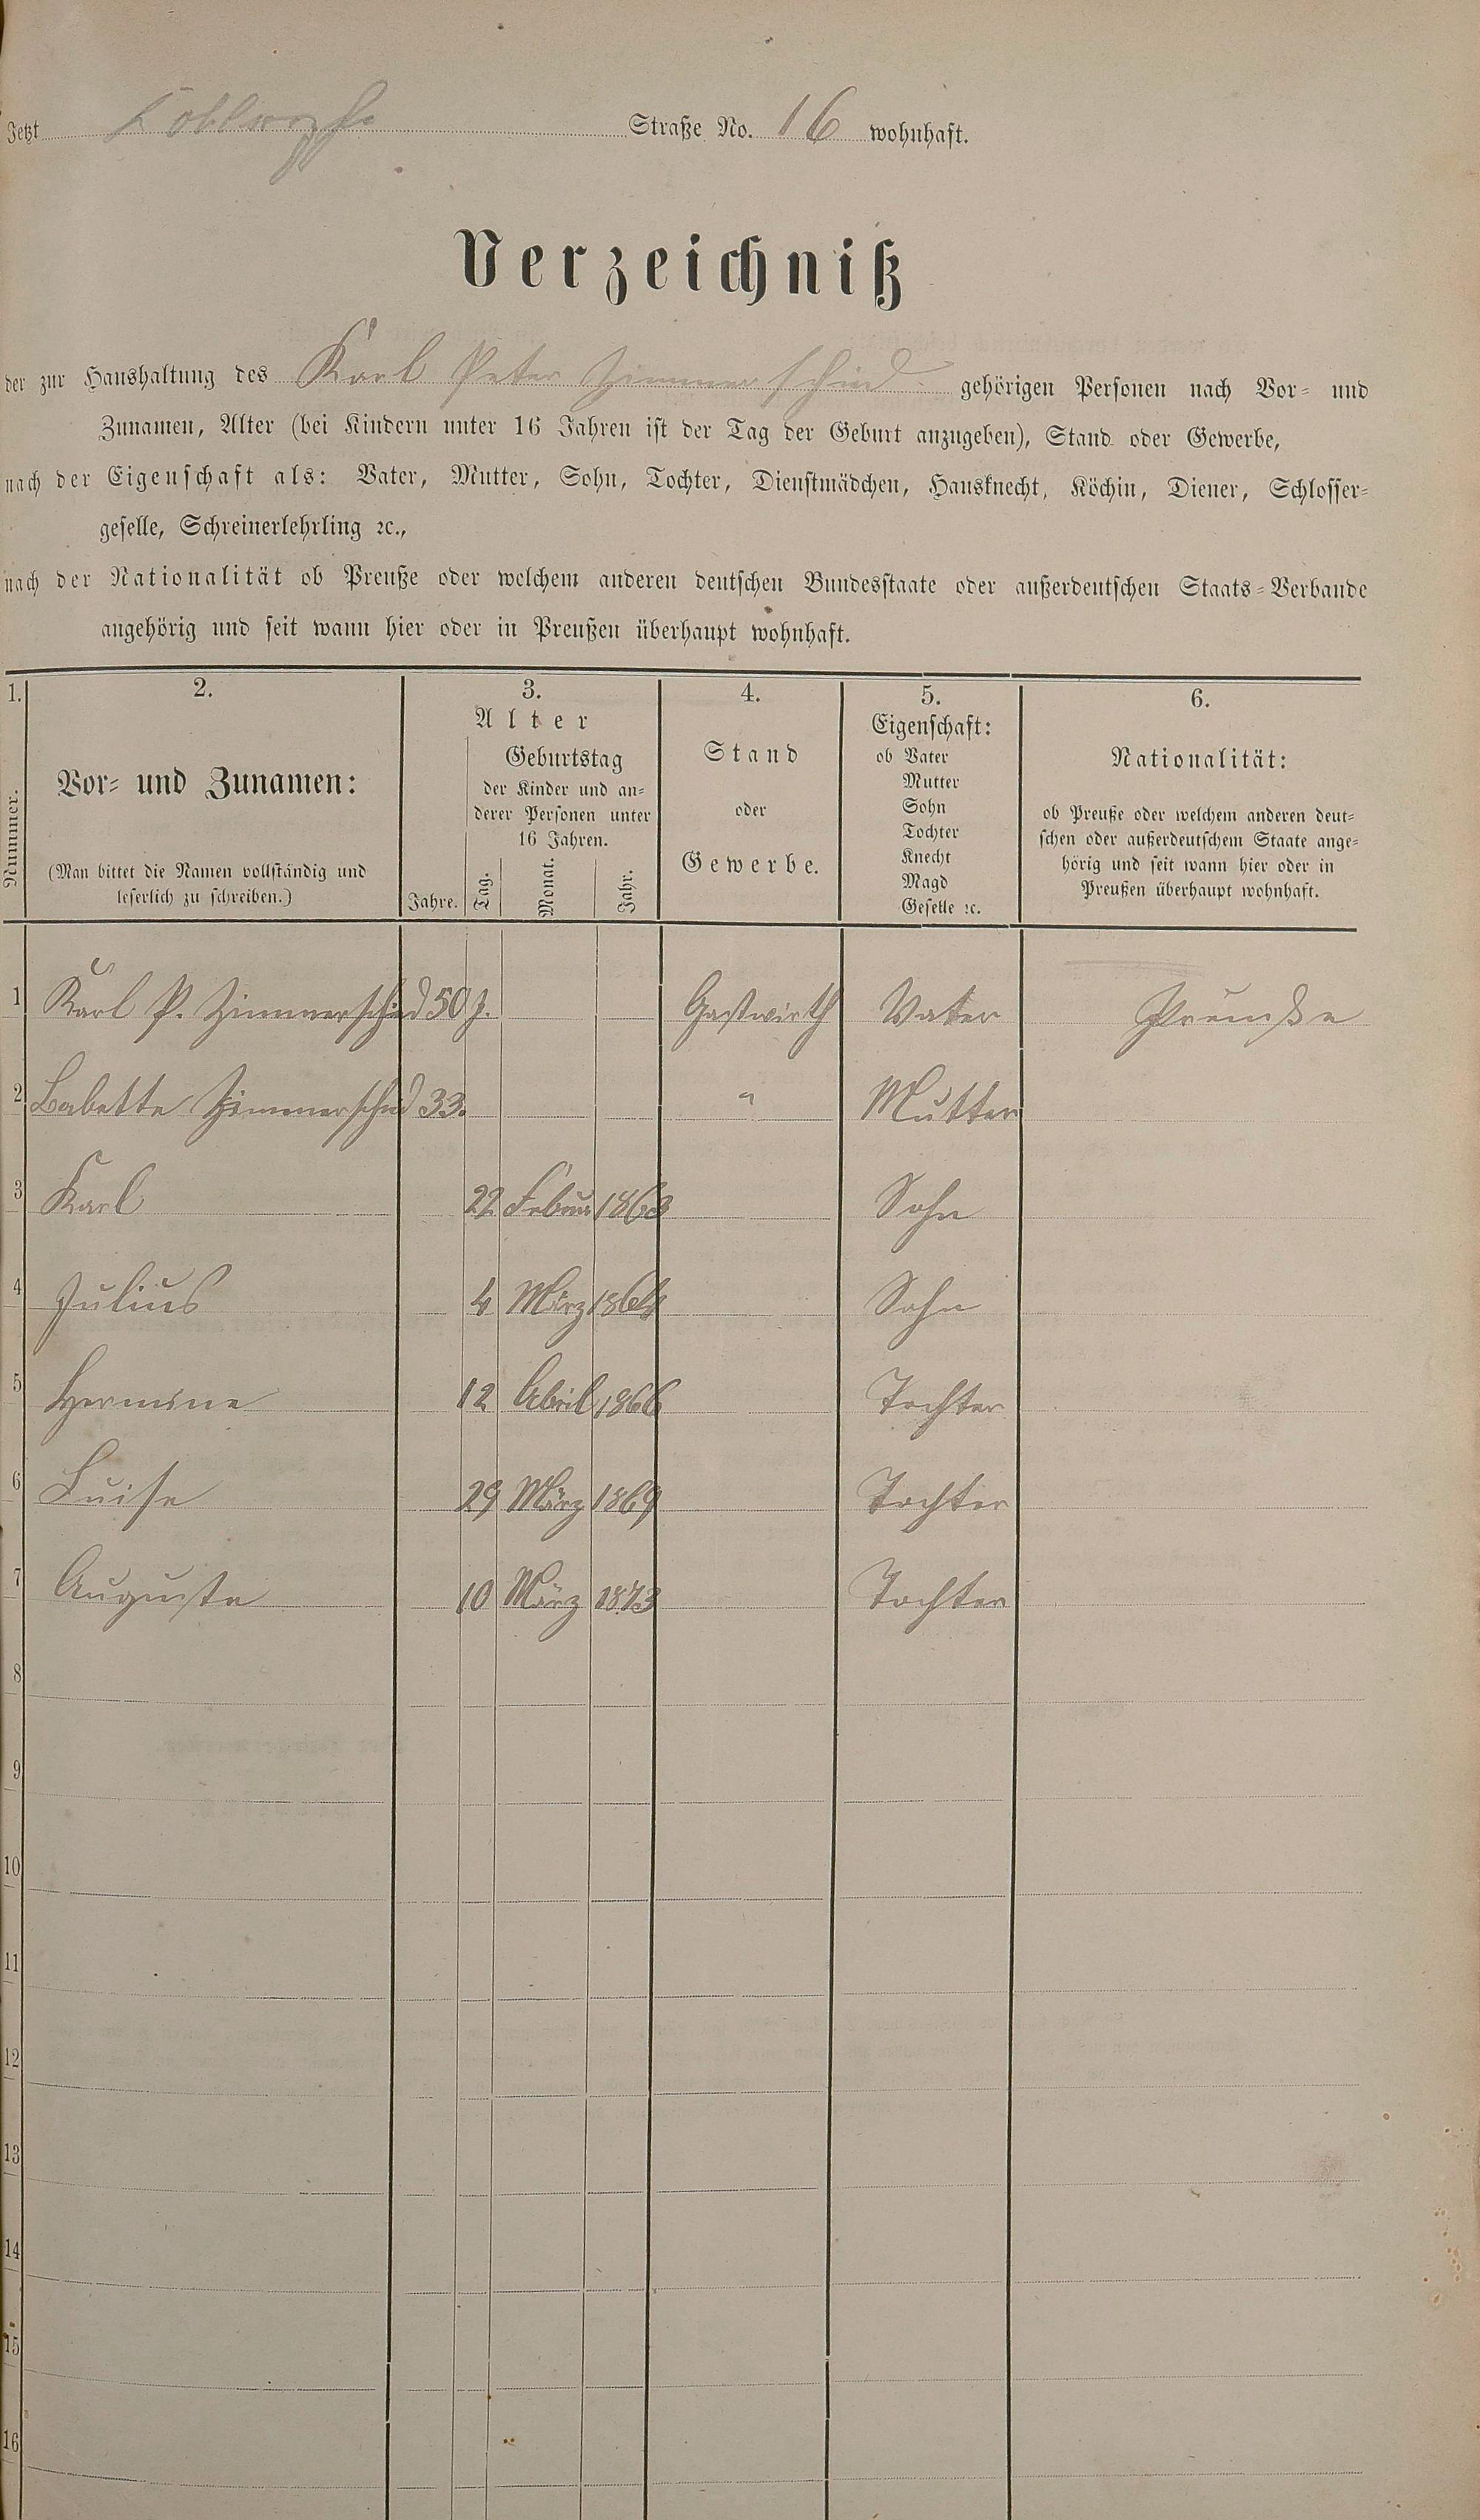 Jetzt Straße No. 16 wohnhaft.
Verzeichniß
der zur Haushaltung des Karl Peter Zimmerschied gehörigen Personen nach Vor- und
Zunamen, Alter (bei Kindern unter 16 Jahren ist der Tag der Geburt anzugeben), Stand oder Gewerbe,
nach der Eigenschaft als: Vater, Mutter, Sohn, Tochter, Dienstmädchen, Hausknecht, Köchin, Diener, Schlosser-
geselle, Schreinerlehrling ꝛc.,
nach der Nationalität ob Preuße oder welchem anderen deutschen Bundesstaate oder außerdeutschen Staats-Verbande
angehörig und seit wann hier oder in Preußen überhaupt wohnhaft.
1. 2. 3. 4. 5. 6.
Nummer.
Vor- und Zunamen:
(Man bittet die Namen vollständig und
leserlich zu schreiben.)
Alter
Jahre.
Geburtstag
der Kinder und an-
derer Personen unter
16 Jahren.
Tag. Monat. Jahr.
Stand
oder
Gewerbe.
Eigenschaft:
ob Vater
Mutter
Sohn
Tochter
Knecht
Magd
Geselle ꝛc.
Nationalität:
ob Preuße oder welchem anderen deut-
schen oder außerdeutschem Staate ange-
hörig und seit wann hier oder in
Preußen überhaupt wohnhaft.
1 Karl P. Zimmerschied 50 J. Gastwirth Vater Preuße
2 Babette Zimmerschied 33. " Mutter
3 Karl 22 Februar 1863 Sohn
4 Julius 4 März 1864 Sohn
5 Hermine 12 Abril 1866 Tochter
6 Luise 29 März 1869 Tochter
7 Auguste 10 März 1873 Tochter
8
9
10
11
12
13
14
15
16